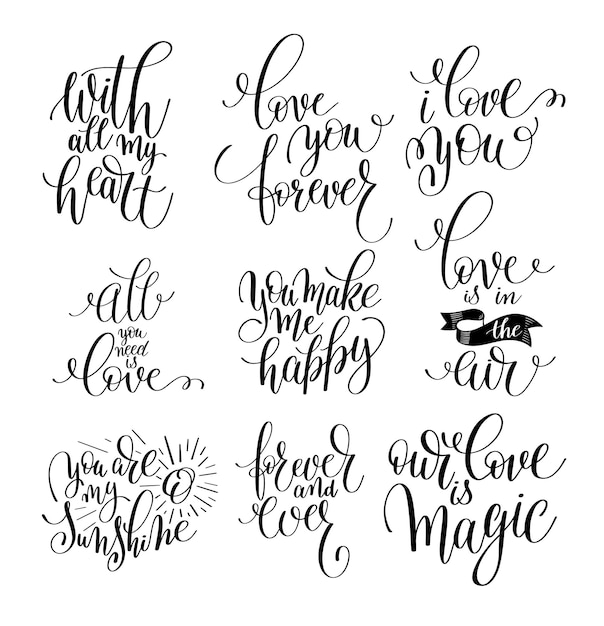 with
all my
heart
love
you
forever
i love
you
all
you
need is
love
you make
me
happy
love
is in
the
air
you are
my
Sunshine
forever
and
ever
our love
is
Magic